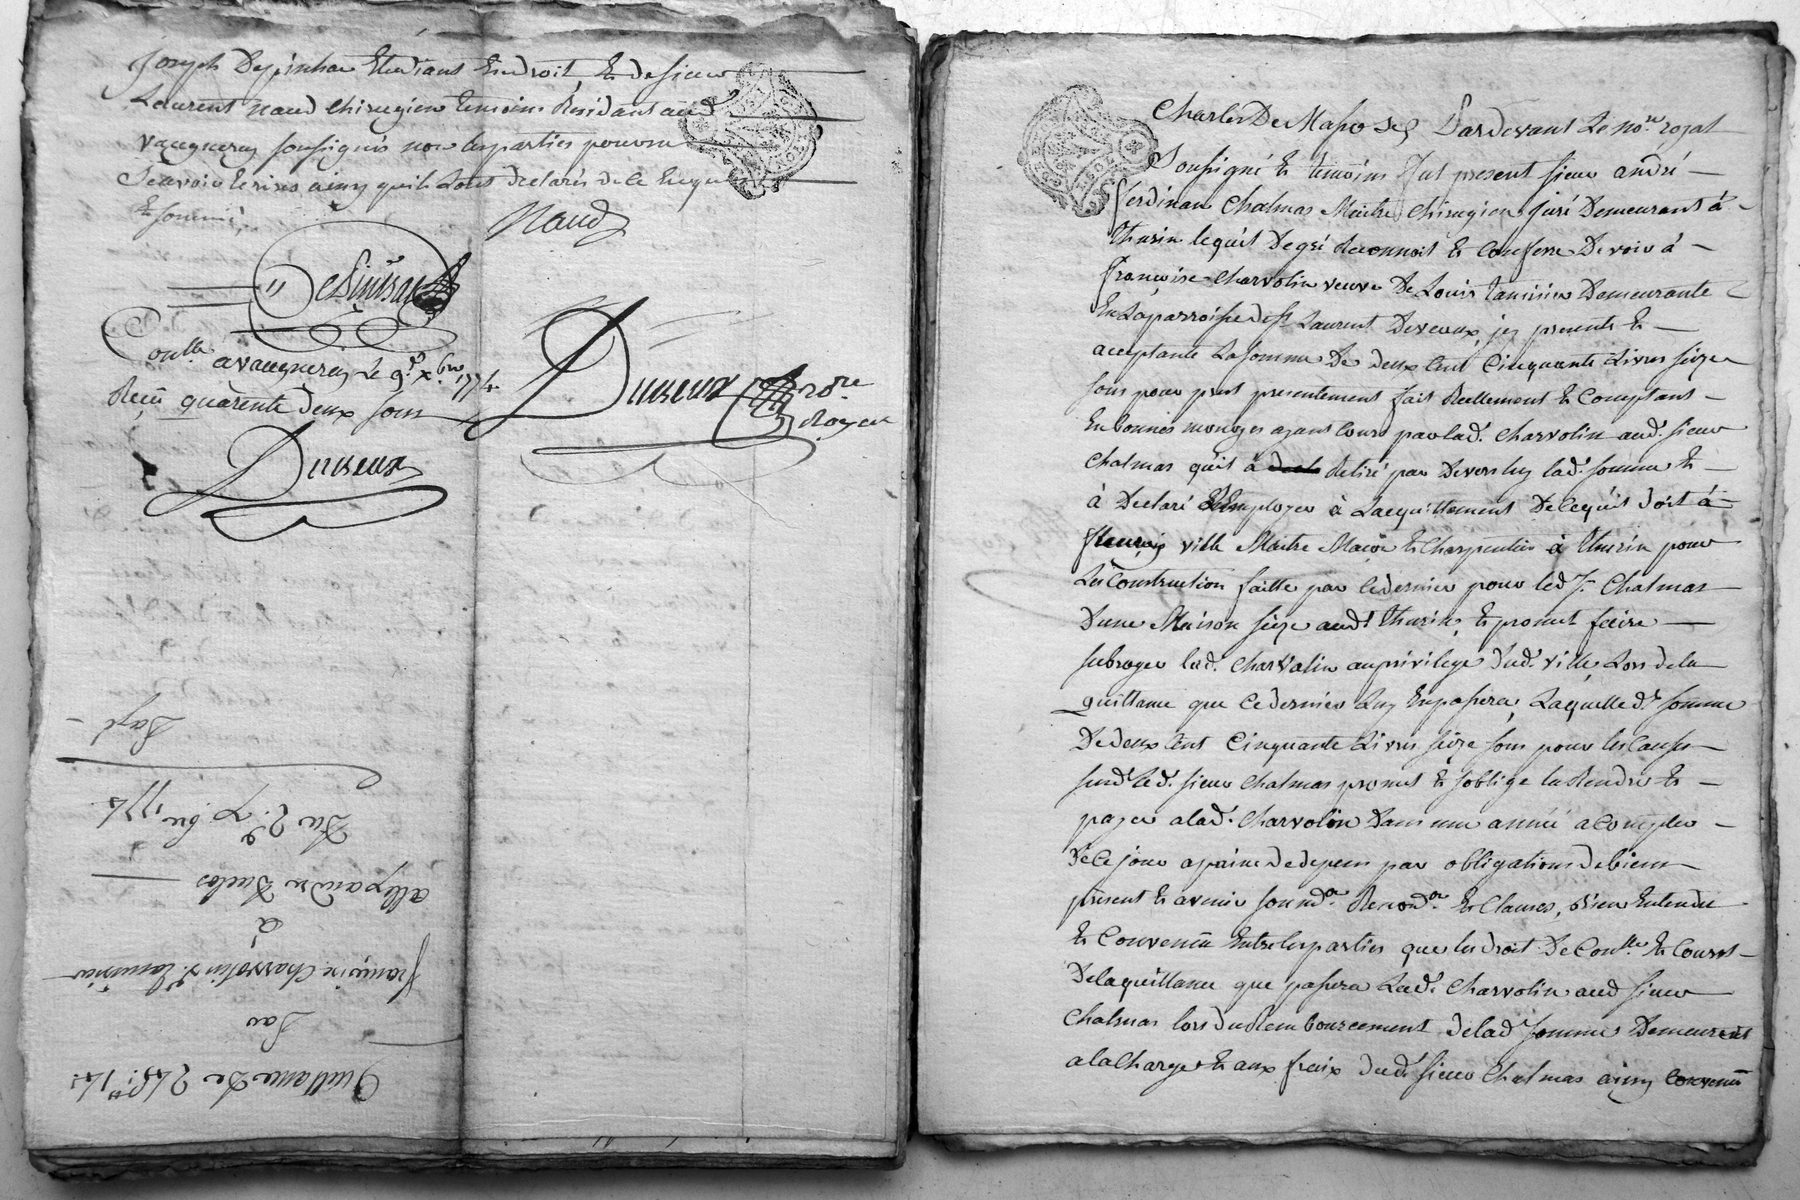 Joseph Depinhac Etudians Endroit, Et de sieur
Laurent naud chirugien temoins Residants aud.
vaugneray soussignés non lesparties pour ne
Sçavoir Ecrires ainsy quils Lont declarés de ce Enquis
Et sommé
Naud
Depinhac
Conlle. a vaugneray Le 9e. Xbre 1774
Reçû quarente deux sous
Duseux
Duseux no.re
Royal
Quittance de 245ll. 14s.
Par
françoise Charvolin Ve. tamisier
à
allexandre Duclos
Du 2e. 7bre 1774
Payé
Charles De Maso
Pardevant Le no.re royal
Soussigné Et temoins fut present sieur andré
ferdinan Chalmas Maitre Chirugien juré Demeurant à
thurin lequel De gré Reconnoit Et Confesse Devoir à
françoise Charvolin veuve De Louis tamisier Demeurante
En La parroisse de st Laurent Devaux, jcy presente Et
acceptante La somme De deux Cent Cinquante Livres seize
sous pour prest presentement fait Reellement Et Comptans
En bonnes monoyes ayant Cours par lad. Charvolin aud. sieur
Chalmas quil à Retiré par Devers luy lad. somme Et
à Declaré Employer à Lacquittement De cequil doit à
fleury ville Maitre Maçon Et Charpentier à thurin pour
Les Construction faitte par Cedernier pour led. sr. Chalmas
Dune Maison size aud. thurin, Et promet faire
subroger lad. Charvolin auprivilege dud. ville, Lors dela
quittance que Cedernier Luy En passera, Laquelle de. somme
De deux Cent Cinquante Livres seize sous pour les Causes
susd. Led. sieur Chalmas promet Et soblige la Rendre Et
payer alad. Charvolin Dans une année a Compter
De Cejour apaine de depens par obligations de biens
present Et avenir Et Clauses, Bien Entendu
Et Convenû Entre lesparties que les droit De Conlle. Et Court
Delaquittance que passera Lad. Charvolin aud sieur
Chalmas lors du Rembourcement delad somme Demeurent
ala Charge Et aux fraix dud. sieur Chalmas ainsy Convenû